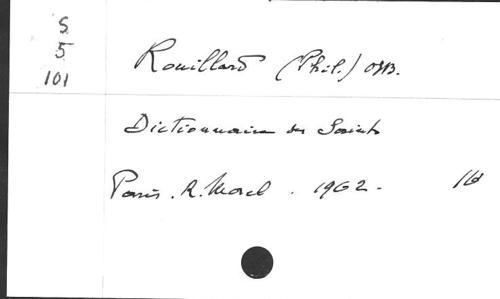 S.
5
101
Rouillard (Phil.) OSB.
Dictionnaire des Saints
Paris. R. Morel. 1962.